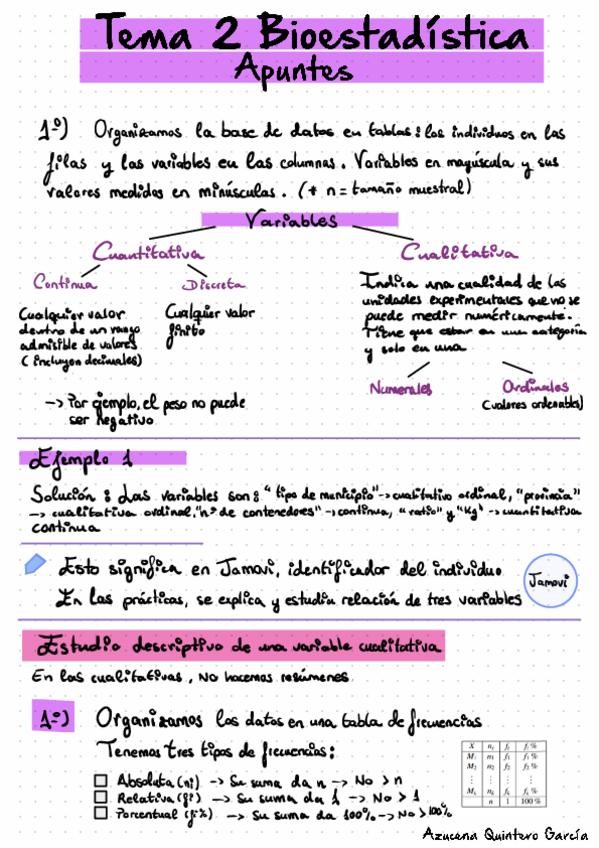 Tema 2 Bioestadística
Apuntes
1º) Organizamos la base de datos en tablas: los individuos en las
filas y las variables en las columnas. Variables en mayúscula y sus
valores medidos en minúsculas. (* n = tamaño muestral)
Variables
Cuantitativa
Cualitativa
Continua
Discreta
Cualquier valor
dentro de un rango
admisible de valores
(incluyen decimales)
Cualquier valor
finito
Indica una cualidad de las
unidades experimentales que no se
puede medir numéricamente.
Tiene que estar en una categoría
y solo en una
Numerales
Ordinales
(valores ordenables)
-> Por ejemplo, el peso no puede
ser negativo
Ejemplo 1
Solución: Las variables son: "tipo de municipio" -> cualitativo ordinal, "provincia"
-> cualitativa ordinal, "nº de contenedores" -> continua, "ratio" y "Kg" -> cuantitativa
continua
Esto significa en Jamovi, identificador del individuo
En las prácticas, se explica y estudia relación de tres variables
Jamovi
Estudio descriptivo de una variable cualitativa
En las cualitativas, no hacemos resúmenes
1º) Organizamos los datos en una tabla de frecuencias
Tenemos tres tipos de frecuencias:
Absoluta (ni) -> Su suma da n -> No > n
Relativa (fi) -> Su suma da 1 -> No > 1
Porcentual (fi%) -> Su suma da 100% -> No > 100%
X ni fi fi%
M1 n1 f1 f1%
M2 n2 f2 f2%
⋮ ⋮ ⋮ ⋮
Mk nk fk fk%
n 1 100%
Azucena Quintero García